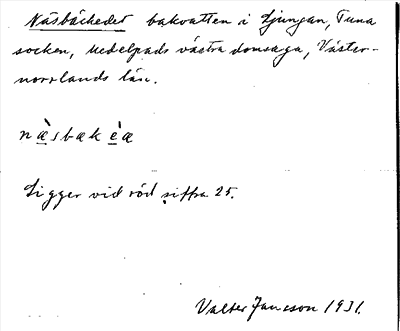 Näsbäckedet bakvatten i Ljungan, Tuna
socken, Medelpads västra domsaga, Väster-
norrlands län.
næ̀sbækèa
Ligger vid röd siffra 25.
Valter Jansson 1931.